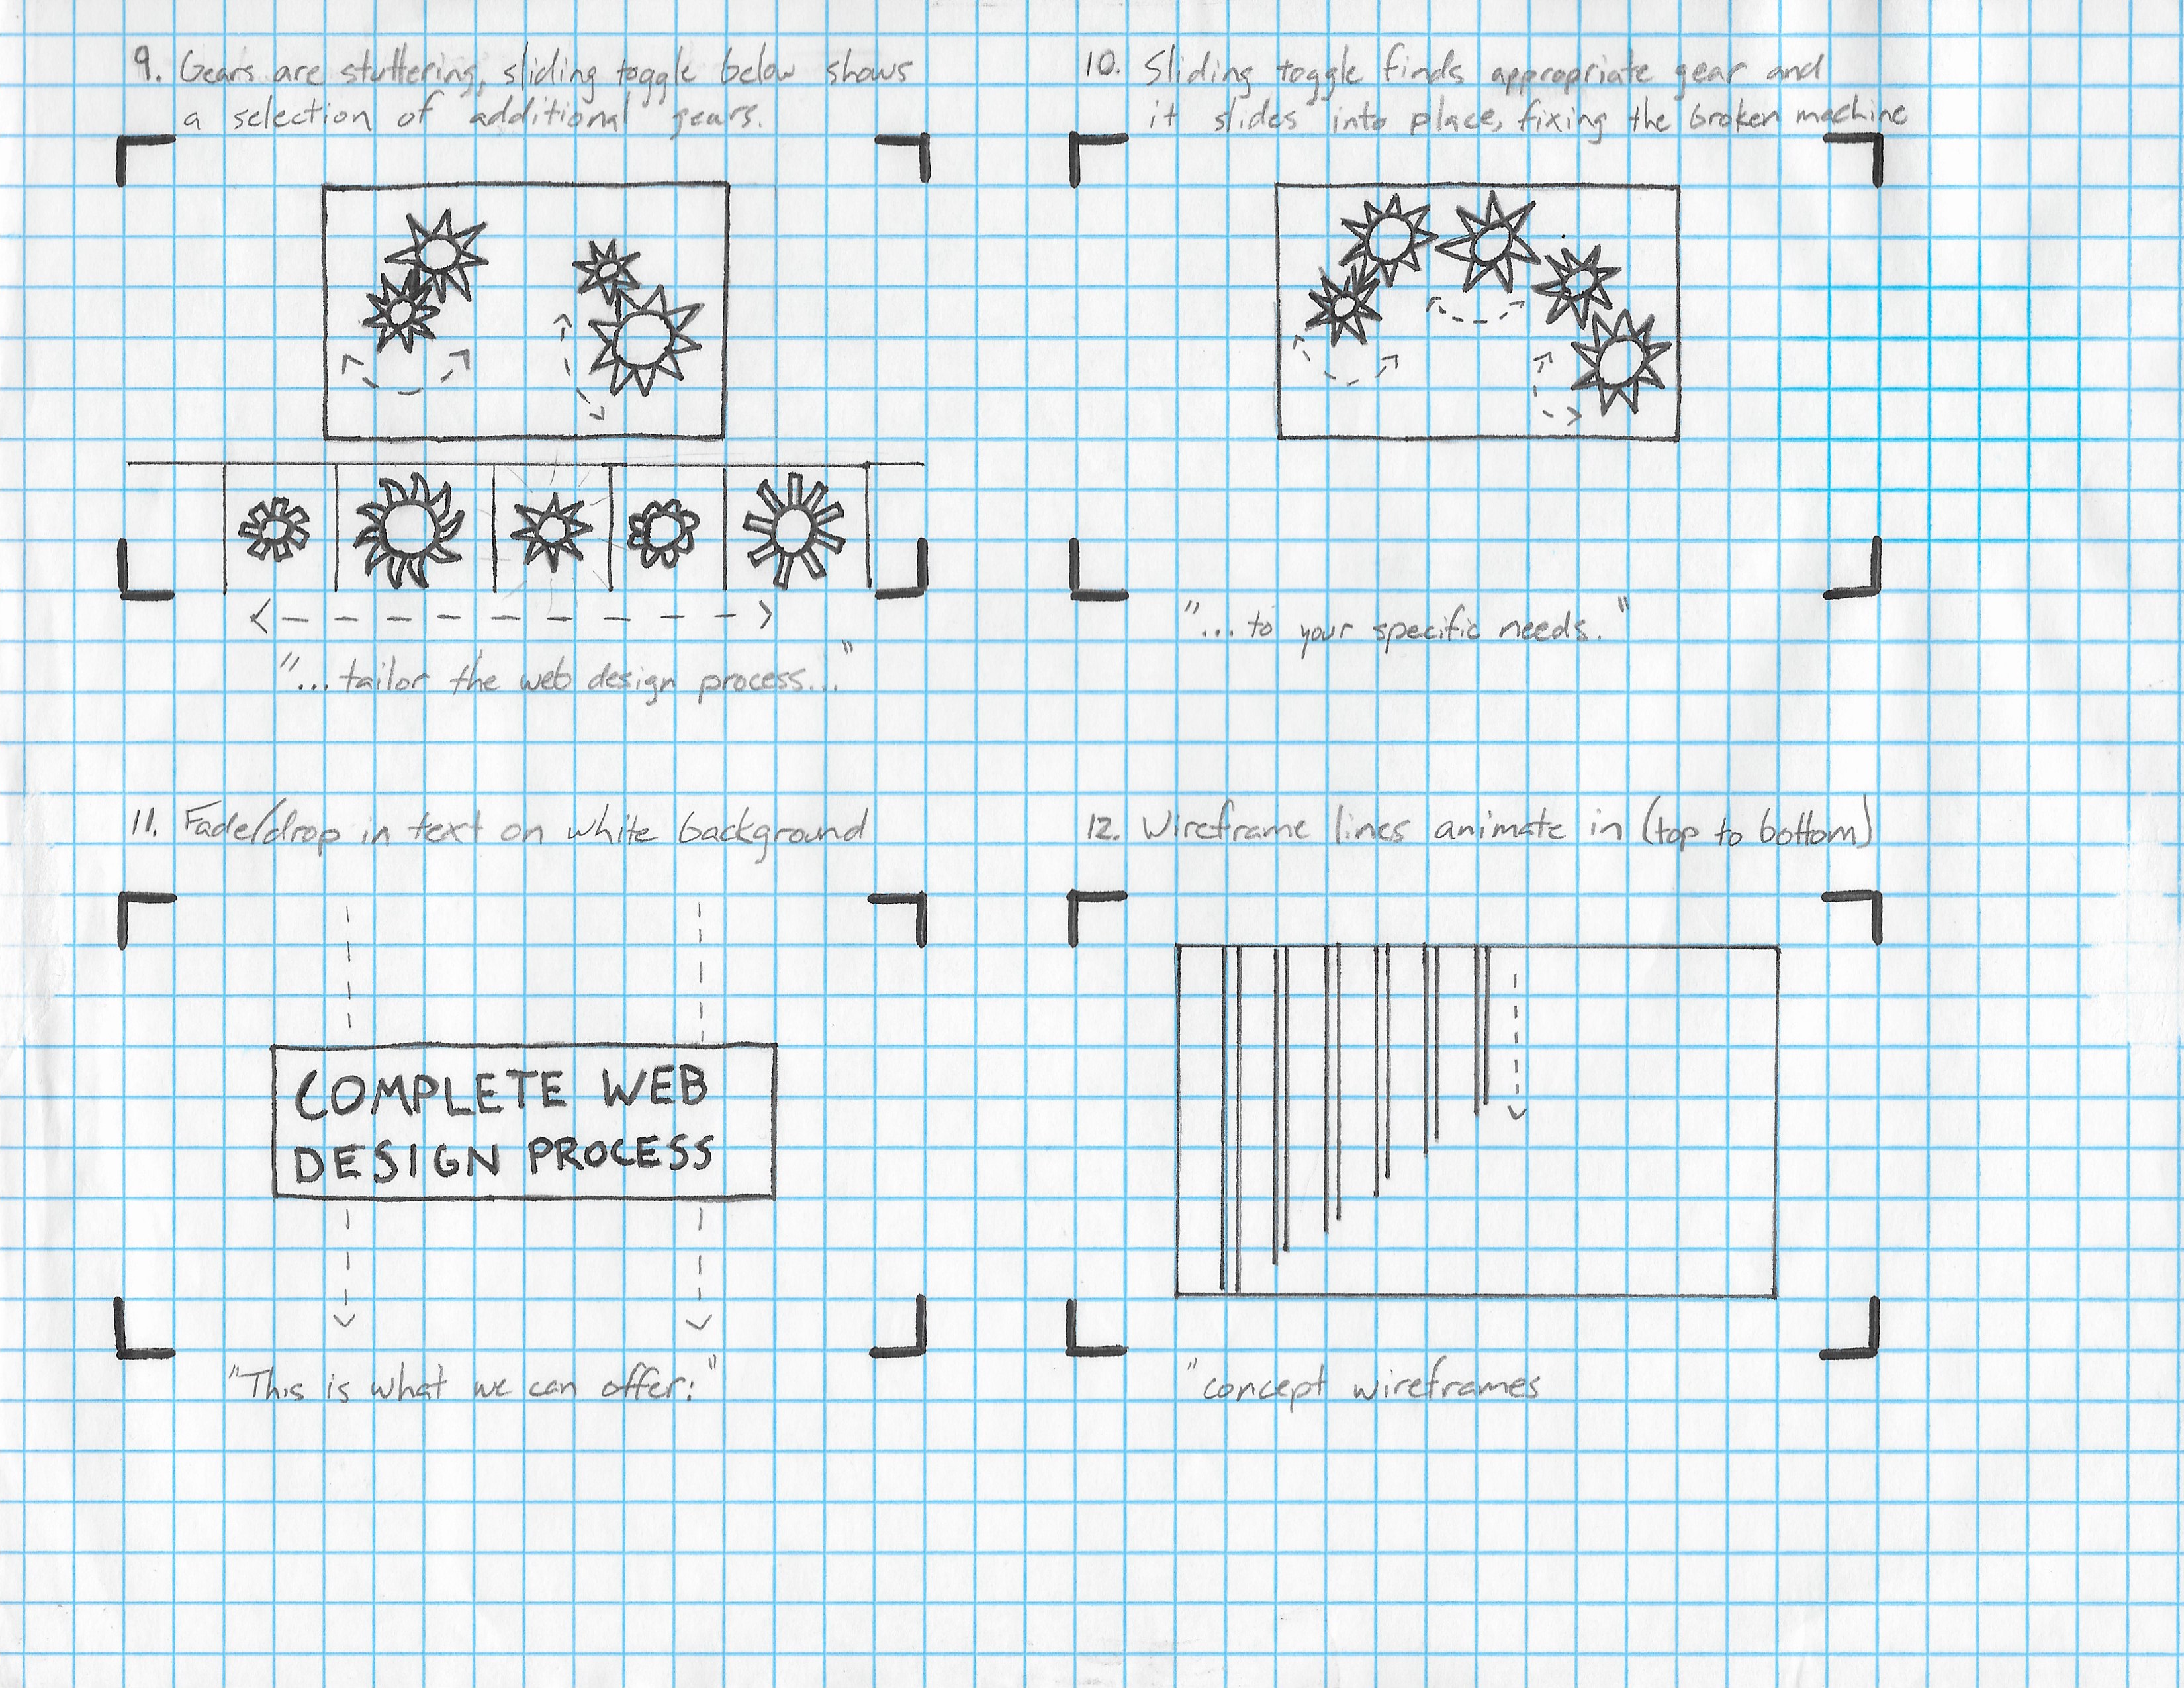 9. Gears are stuttering, sliding toggle below shows
a selection of additional gears.
"...tailor the web design process..."
10. Sliding toggle finds appropriate gear and
it slides into place, fixing the broken machine
"...to your specific needs."
11. Fade/drop in text on white background
COMPLETE WEB
DESIGN PROCESS
"This is what we can offer:"
12. Wireframe lines animate in (top to bottom)
"concept wireframes